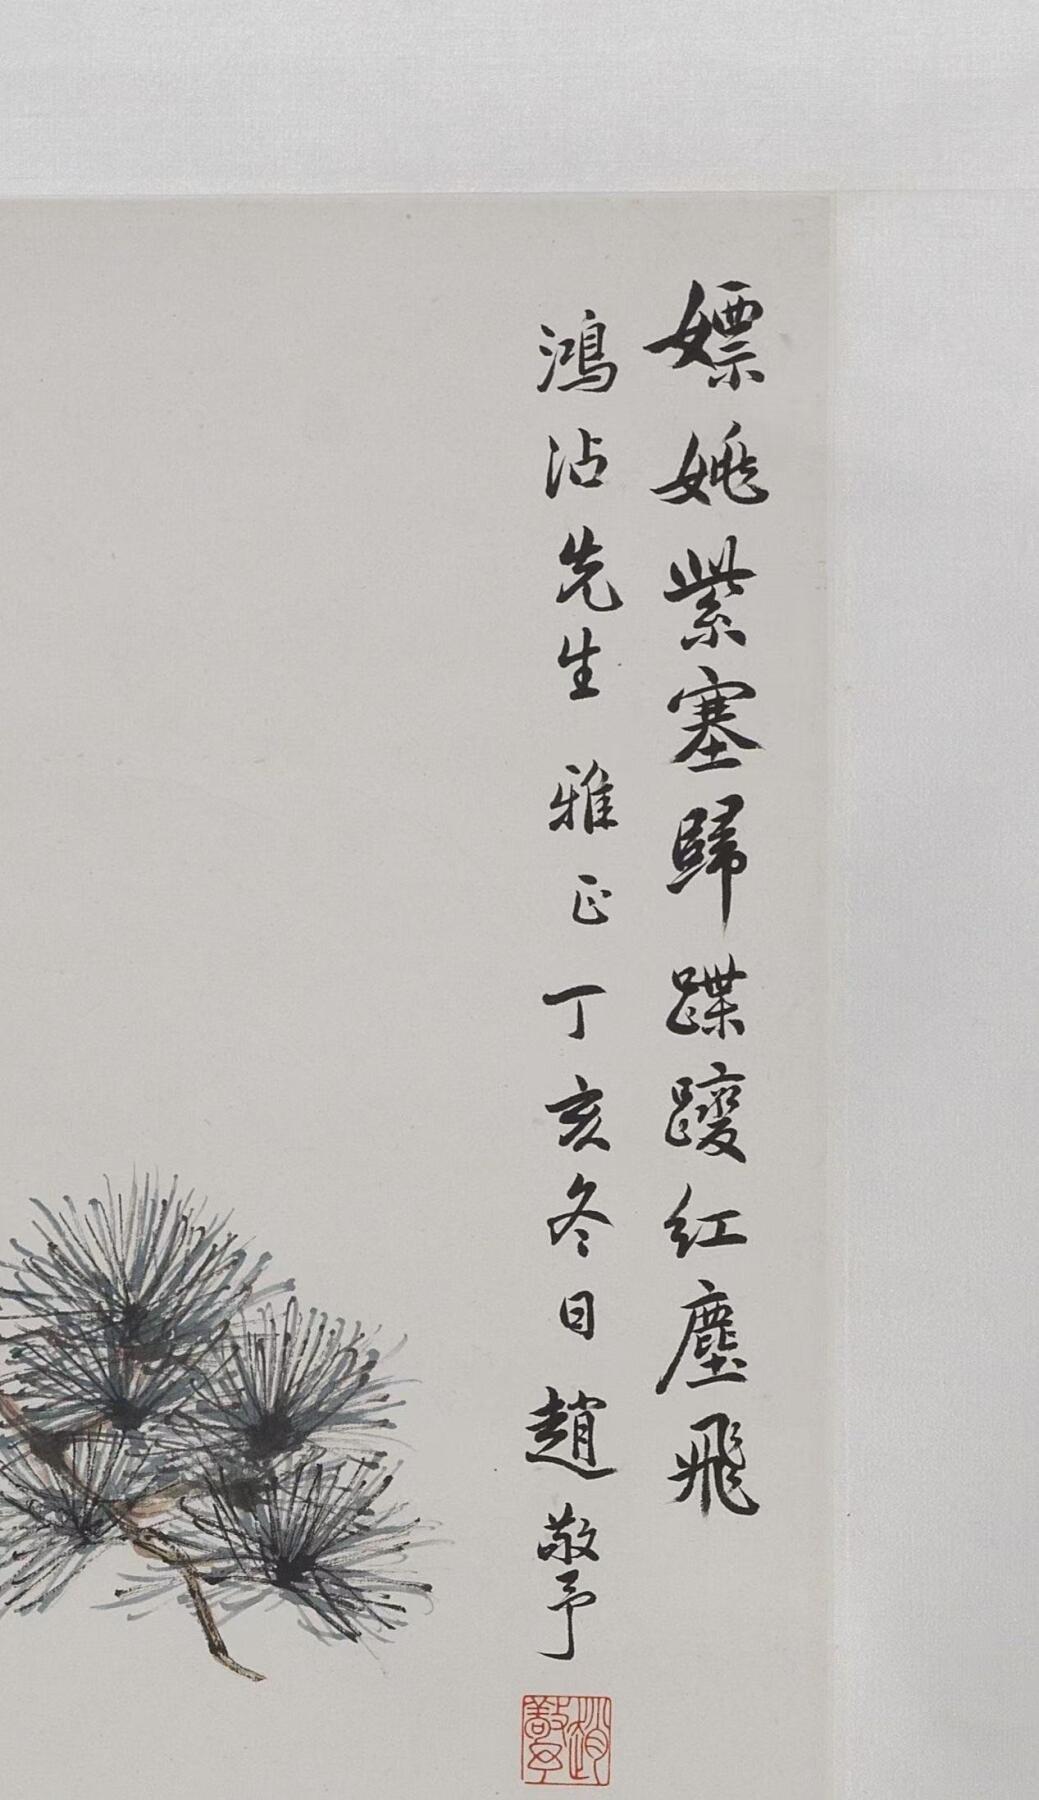 嫖姚紫塞歸蹀躞紅塵飛
鴻沾先生雅正丁亥冬日趙敬予
趙敬予